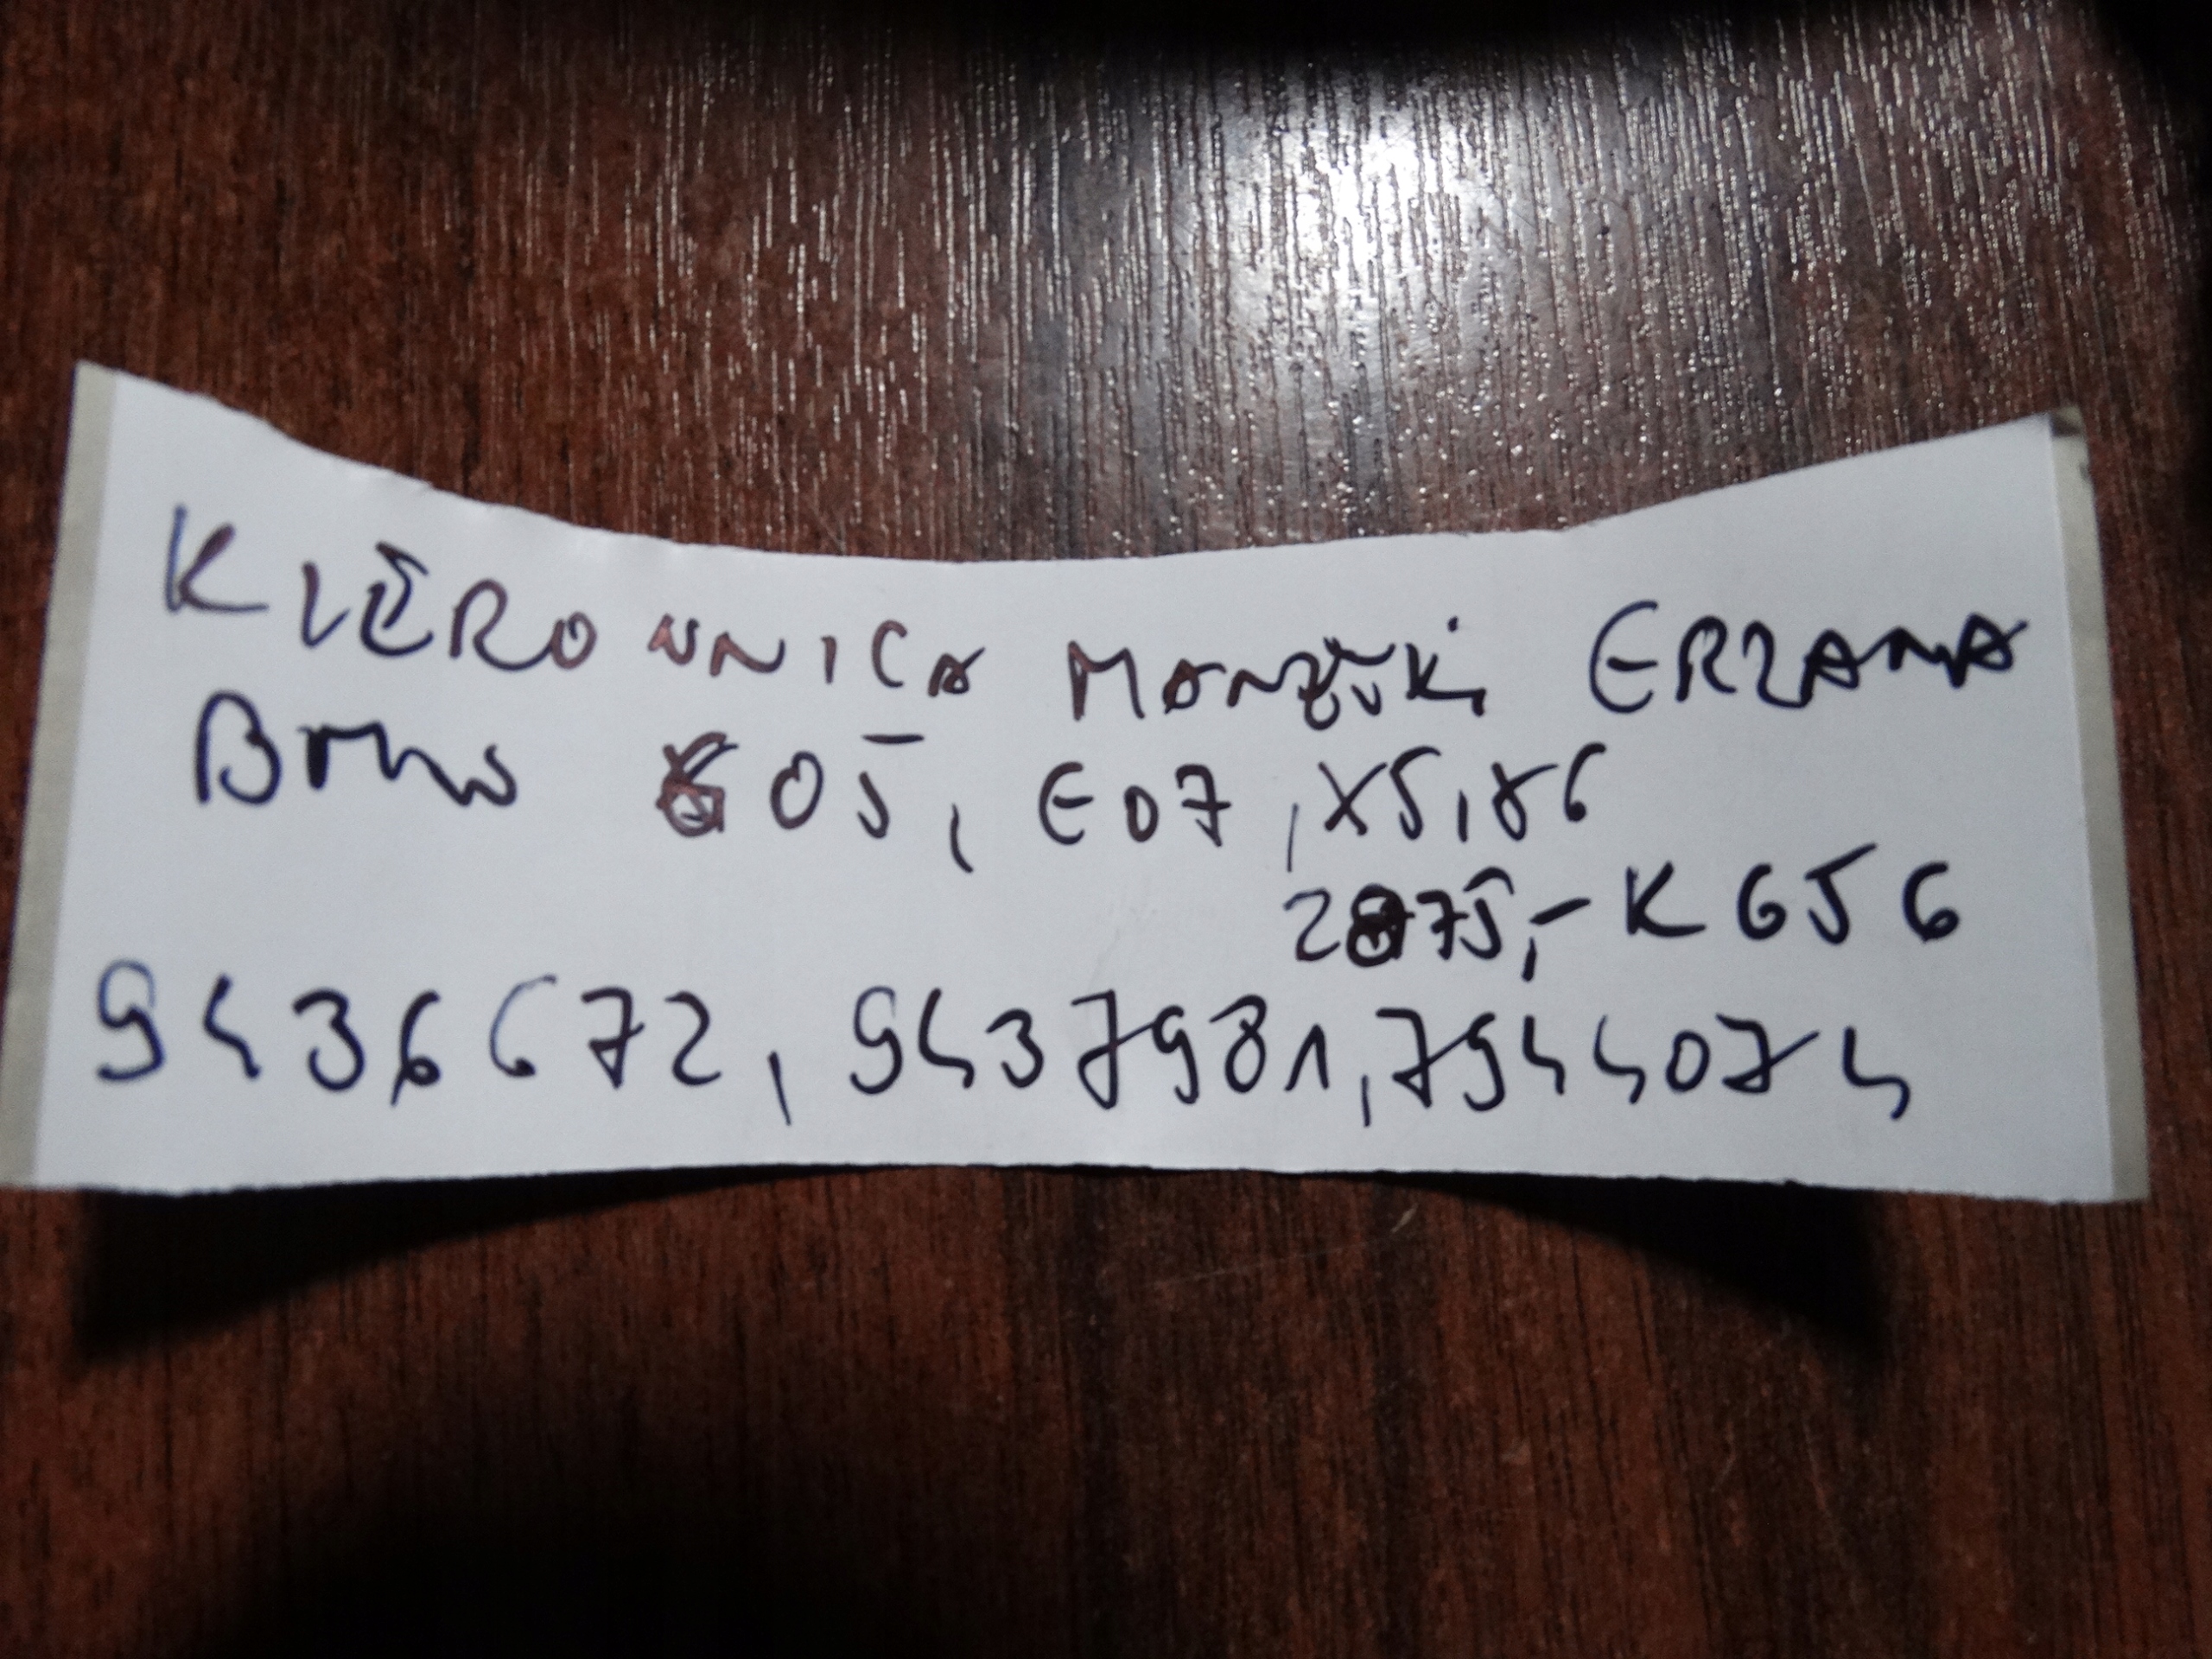 KIEROWNICA MANŻUKI ERZAMA
BMW G05, G07, X5, X6
2875,- K656
9436672, 9437981, 7944074